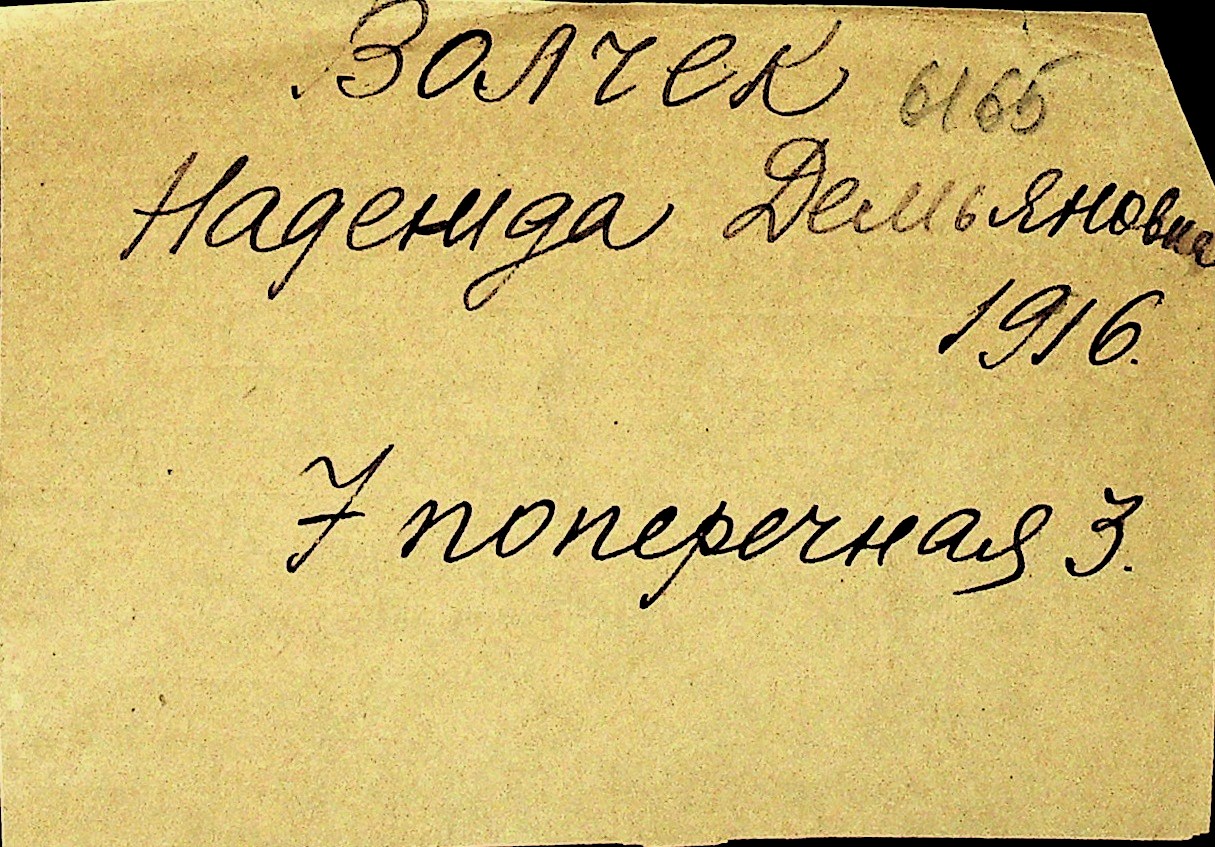 Волчек 6165
Надежда Демьяновна
1916.
7 поперечная 3.